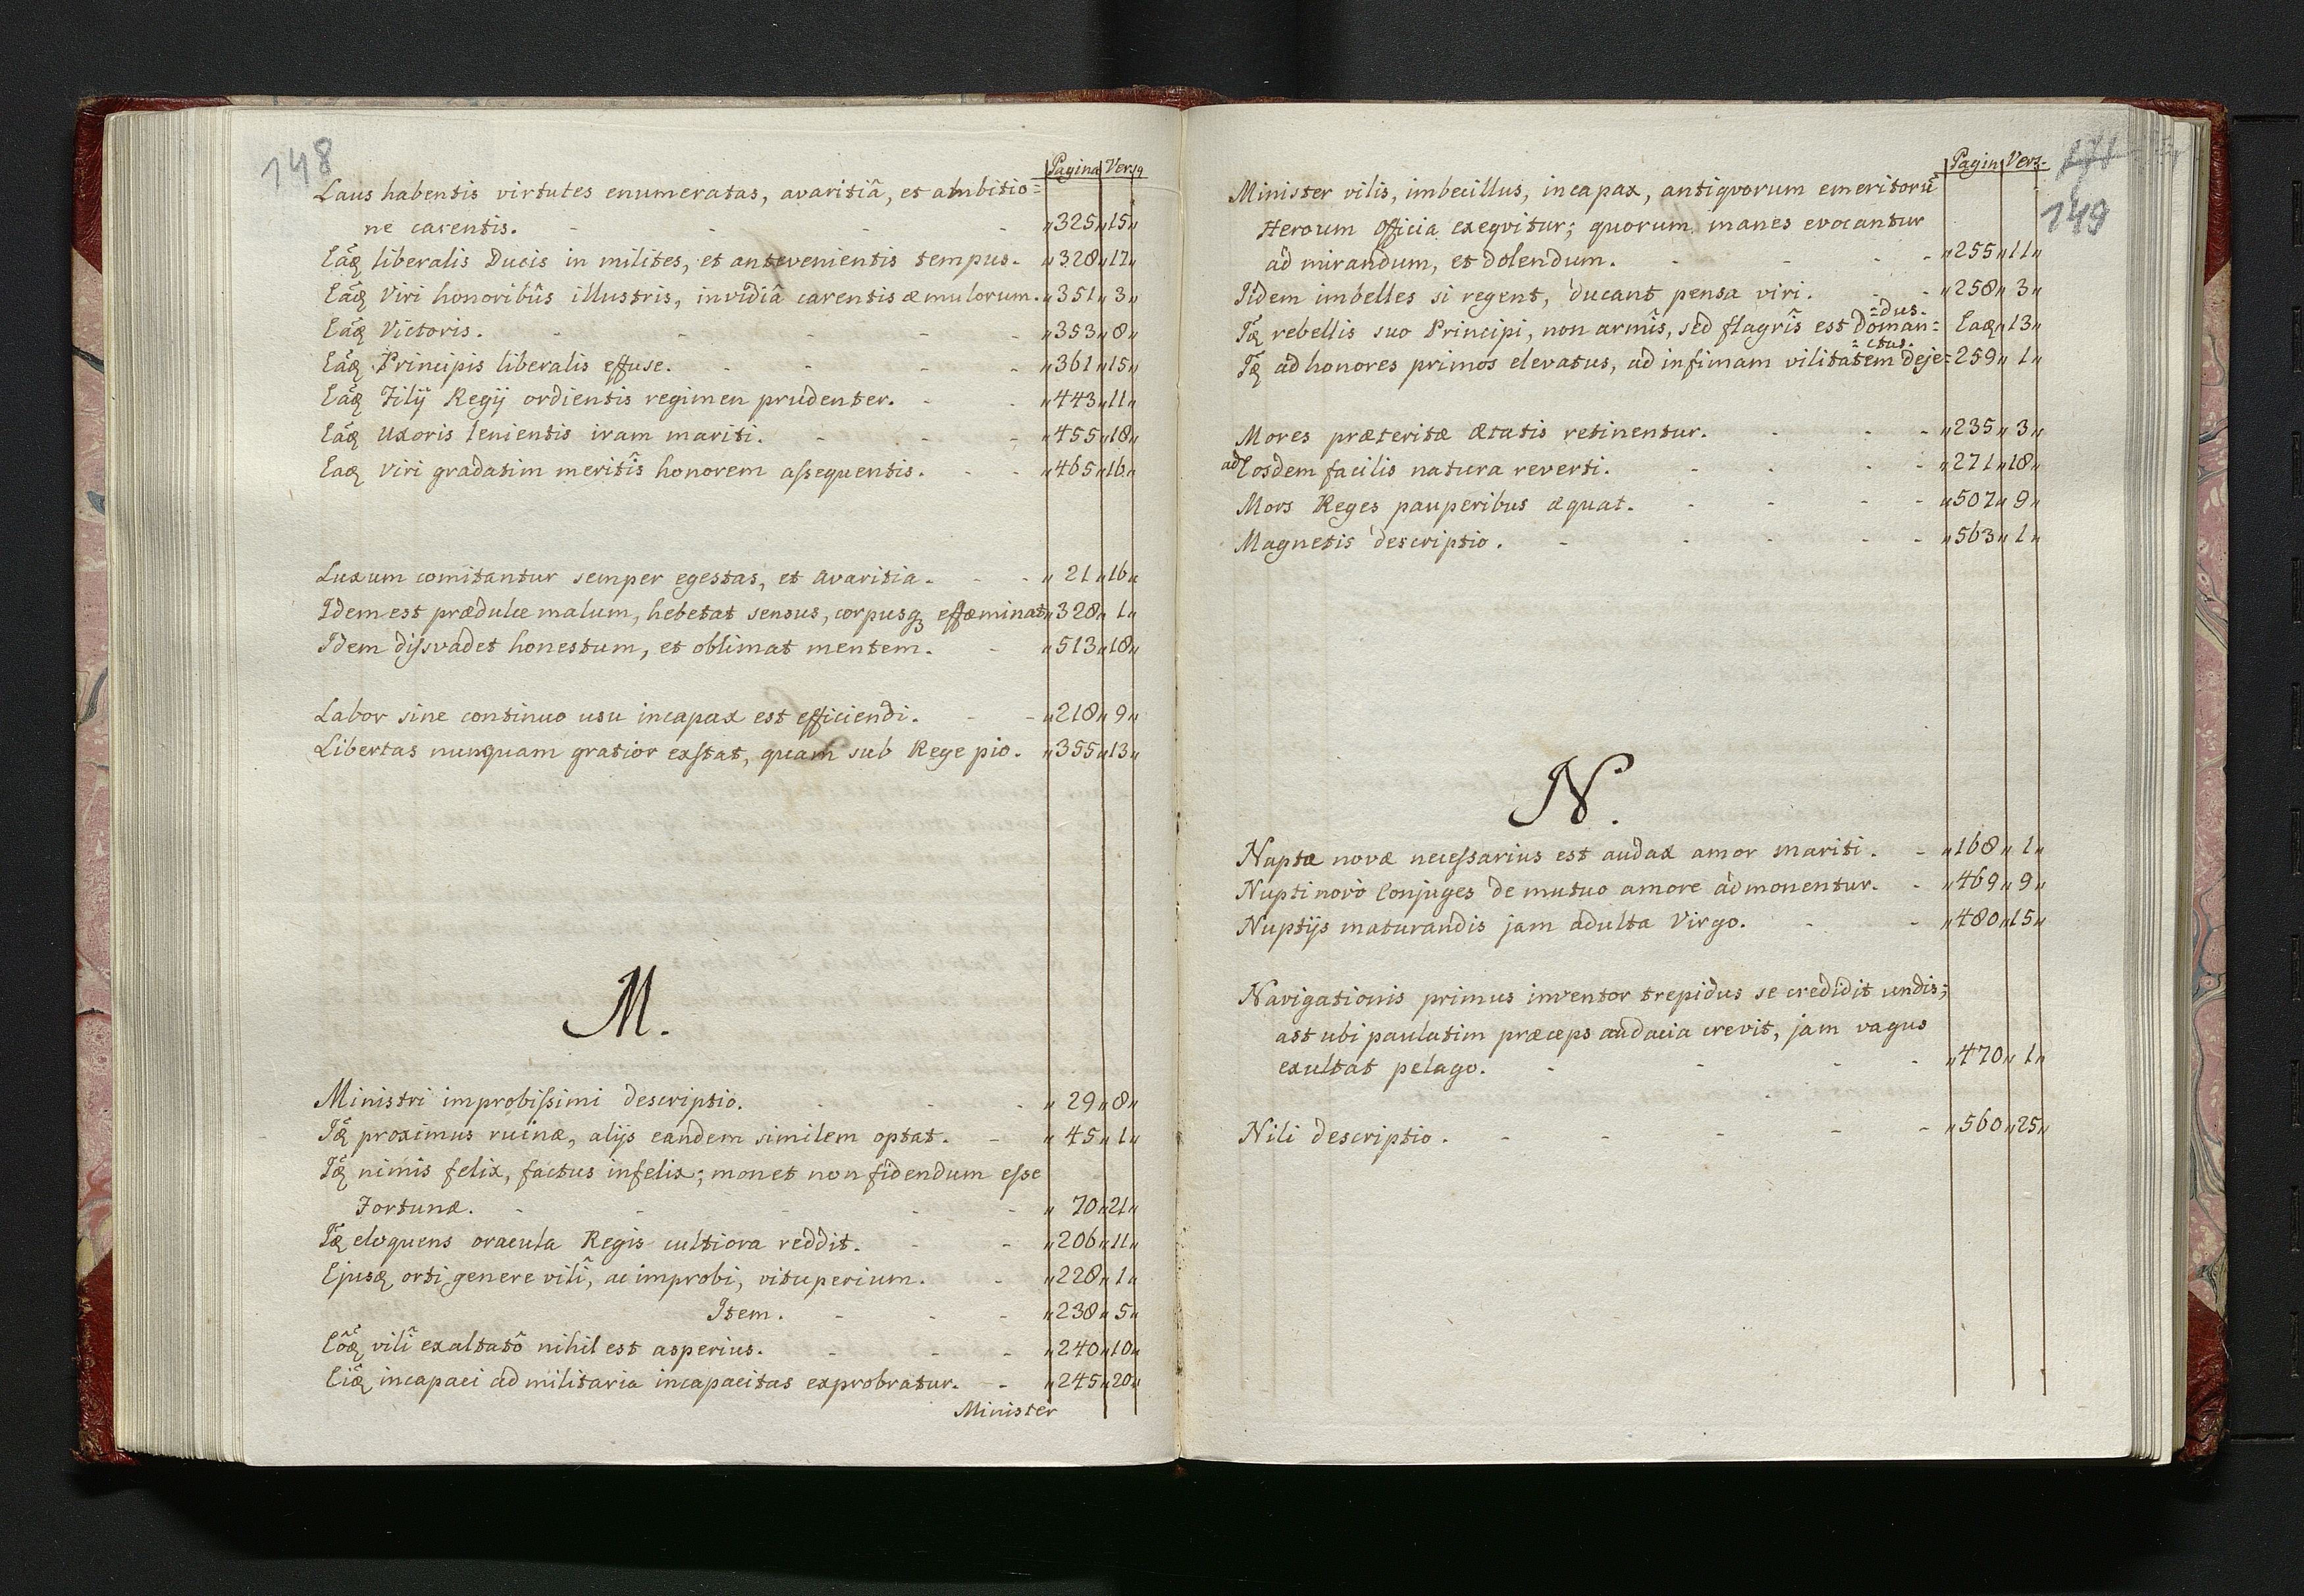 148
Pagina Vers9
Laus habentis virtutes enumeratas, avaritiâ, et ambitio=
ne carentis. - - - - „325„15„
Eâq liberalis Ducis in milites, et antevenientis tempus. - „328„17„
Eâq Viri honoribûs illustris, invidiâ carentis æmulorum. „351„3„
Eâq Victoris. - - - - „353„8„
Eâq Principis liberalis effuse. - - - - „361„15„
Eâq Filij Regij ordientis regimen prudenter. - - „443„11„
Eâq Uxoris lenientis iram mariti. - - - „455„18„
Eaq Viri gradatim meritîs honorem aſsequentis. - - „465„16„
Luxum comitantur semper egestas, et avaritia. - - „21„16„
Idem est prædulce malum, hebetat sensus, corpusq effæminat „328„1„
Idem diſsvadet honestum, et oblimat mentem. - „513„18„
Labor sine continuo usu incapax est efficiendi. - - „218„9„
Libertas nunquam gratior exſtat, quam sub Rege pio. „355„13„
M.
Ministri improbiſsimi descriptio. - - - „29„8„
Iq proximus ruinæ, alijs eandem similem optat. - „45„1„
Iq nimis felix, factus infelix; monet non fidendum eſse
Fortunæ. - - - - - „70„21„
Iq eloquens oracula Regis cultiora reddit. - - „206„11„
Ejusq orti genere vilî, ac improbi, vituperium. - „228„1„
Item. - - - „238„5„
Eôq vilî exaltatô nihil est asperius. - - - „240„10„
Eîq incapaci ad militaria incapacitas exprobratur. - „245„20„
Minister
Pagin Vers-
149
Minister vilis, imbecillus, incapax, antiqvorum emeritorũ
Heroum Officia exeqvitur; quorum manes evocantur
ad mirandum, et dolendum. - - - - „255„11„
Iidem imbelles si regent, ducant pensa viri. - - „258„3„
=dus.
Iq rebellis suo Principi, non armîs, sed flagrîs est doman= Eaq„13„
=ctus.
Iq ad honores primos elevatus, ad infimam vilitatem deje= 259„1„
Mores præteritæ ætatis retinentur. - - - „235„3„
ad Eosdem facilis natura reverti. - - - - „271„18„
Mors Reges pauperibus æquat. - - - „507„9„
Magnetis descriptio. - - - - „563„1„
N.
Nuptæ novæ neceſsarius est audax amor mariti. - „168„1„
Nupti novò Conjuges de mutuo amore admonentur. - „469„9„
Nuptijs maturandis jam adulta Virgo. - - „480„15„
Navigationis primus inventor trepidus se credidit undis;
ast ubi paulatim præceps audacia crevit, jam vagus
exultat pelago. - - - - „470„1„
Nili descriptio. - - - - - „560„25„